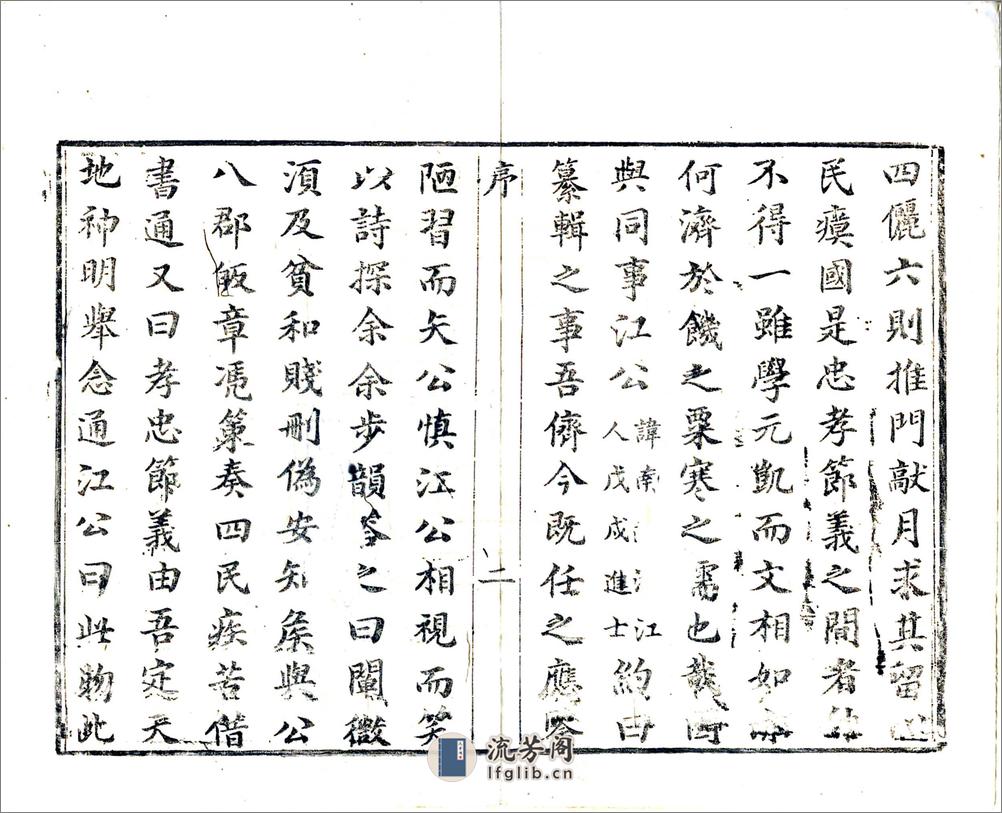 四儷六則推門敲月求其留心
民瘼國是忠孝節義之間者
不得一雖學元凱而文相如亦
何濟於饑之粟寒之需也哉
與同事江公
諱南
江
人戊戌進士
約曰
纂輯之事吾儕今既任之應
序
二
陋習而矢公慎江公相視而笑
以詩探余余步韻答之曰闡微
須及貧和賤刪偽安知侯與公
八郡皈章凴第奏四民疾苦借
書通又曰孝忠節義由吾定天
地神明舉念通江公曰此物此
流芳阁
lfglib.cn